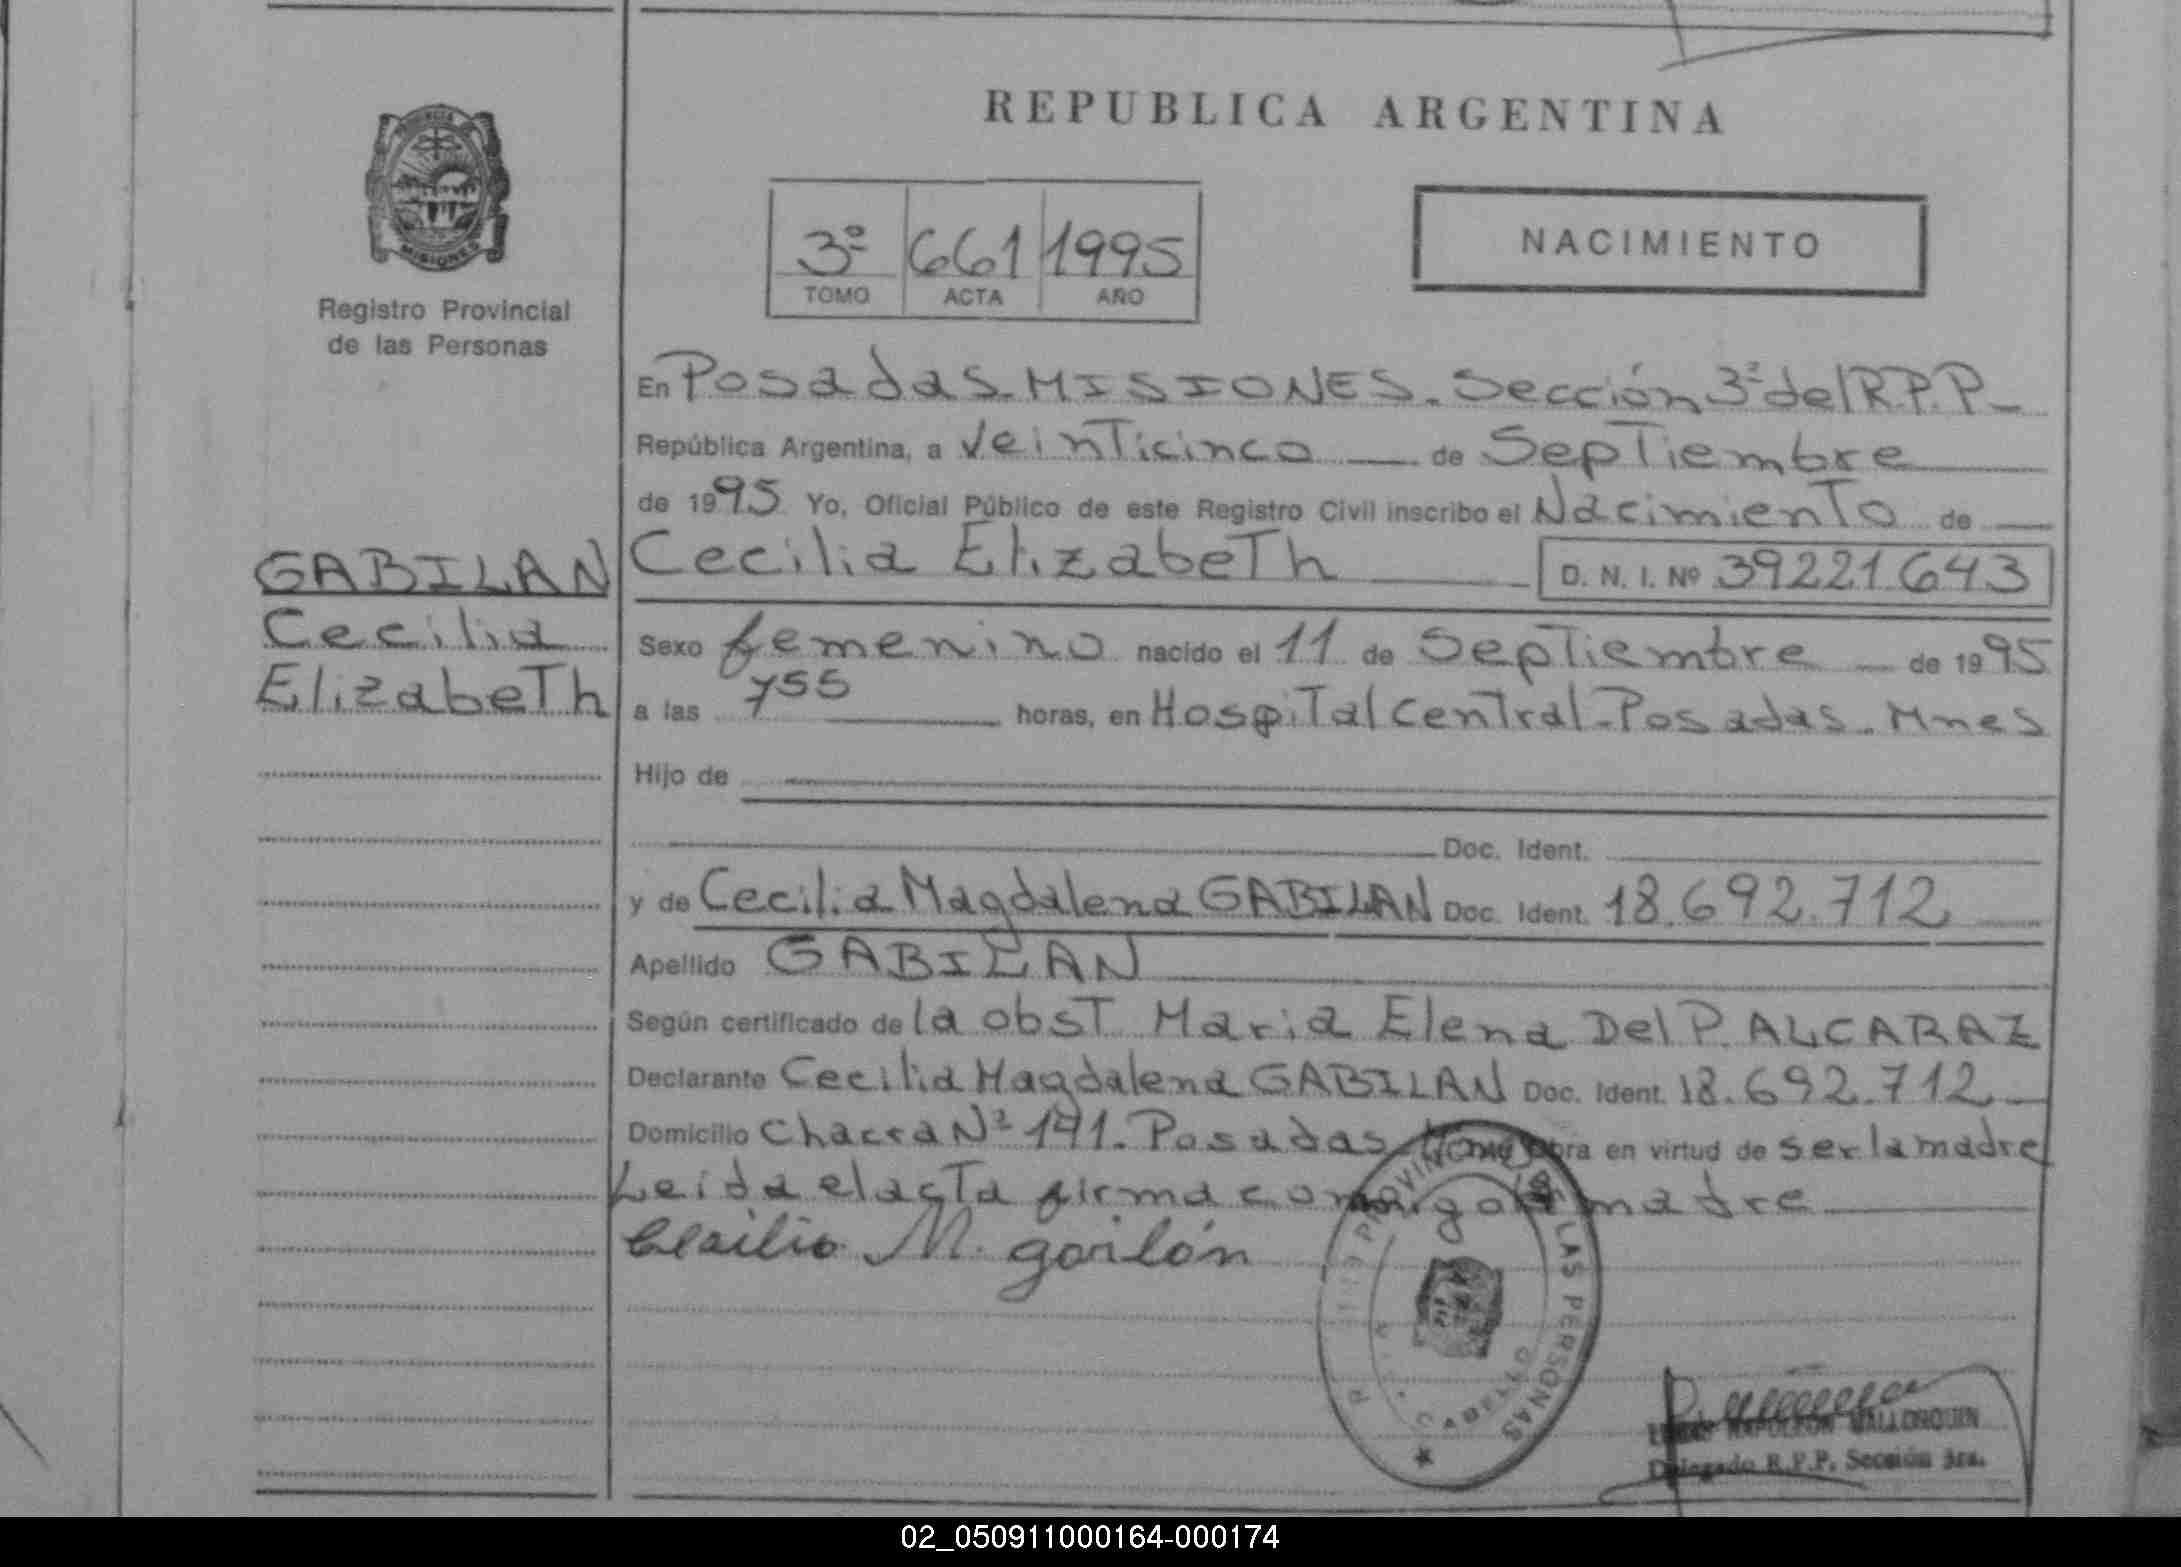 REPUBLICA ARGENTINA
PROVINCIA DE
MISIONES
Registro Provincial
de las Personas
3º 661 1995
TOMO ACTA AÑO
NACIMIENTO
En Posadas. MISIONES. Sección 3ª del R.P.P.
República Argentina, a veinticinco de Septiembre
de 1995 Yo, Oficial Público de este Registro Civil inscribo el Nacimiento de
GABILAN
Cecilia
Elizabeth
Cecilia Elizabeth D. N. I. Nº 39221643
Sexo femenino nacido el 11 de Septiembre de 1995
a las 755 horas, en Hospital Central-Posadas. Mnes
Hijo de
Doc. Ident.
y de Cecilia Magdalena GABILAN Doc. Ident. 18.692.712
Apellido GABILAN
Según certificado de la obst Maria Elena Del P. ALCARAZ
Declarante Cecilia Magdalena GABILAN Doc. Ident. 18.692.712
Domicilio Chacra Nº 191. Posadas obra en virtud de ser la madre
Leida el acta firma conmigo la madre
Cecilia M. gailón
DE LAS PERSONAS
NAPOLEON MALLORQUIN
Delegado R.P.P. Sección 3ra.
02_050911000164-000174